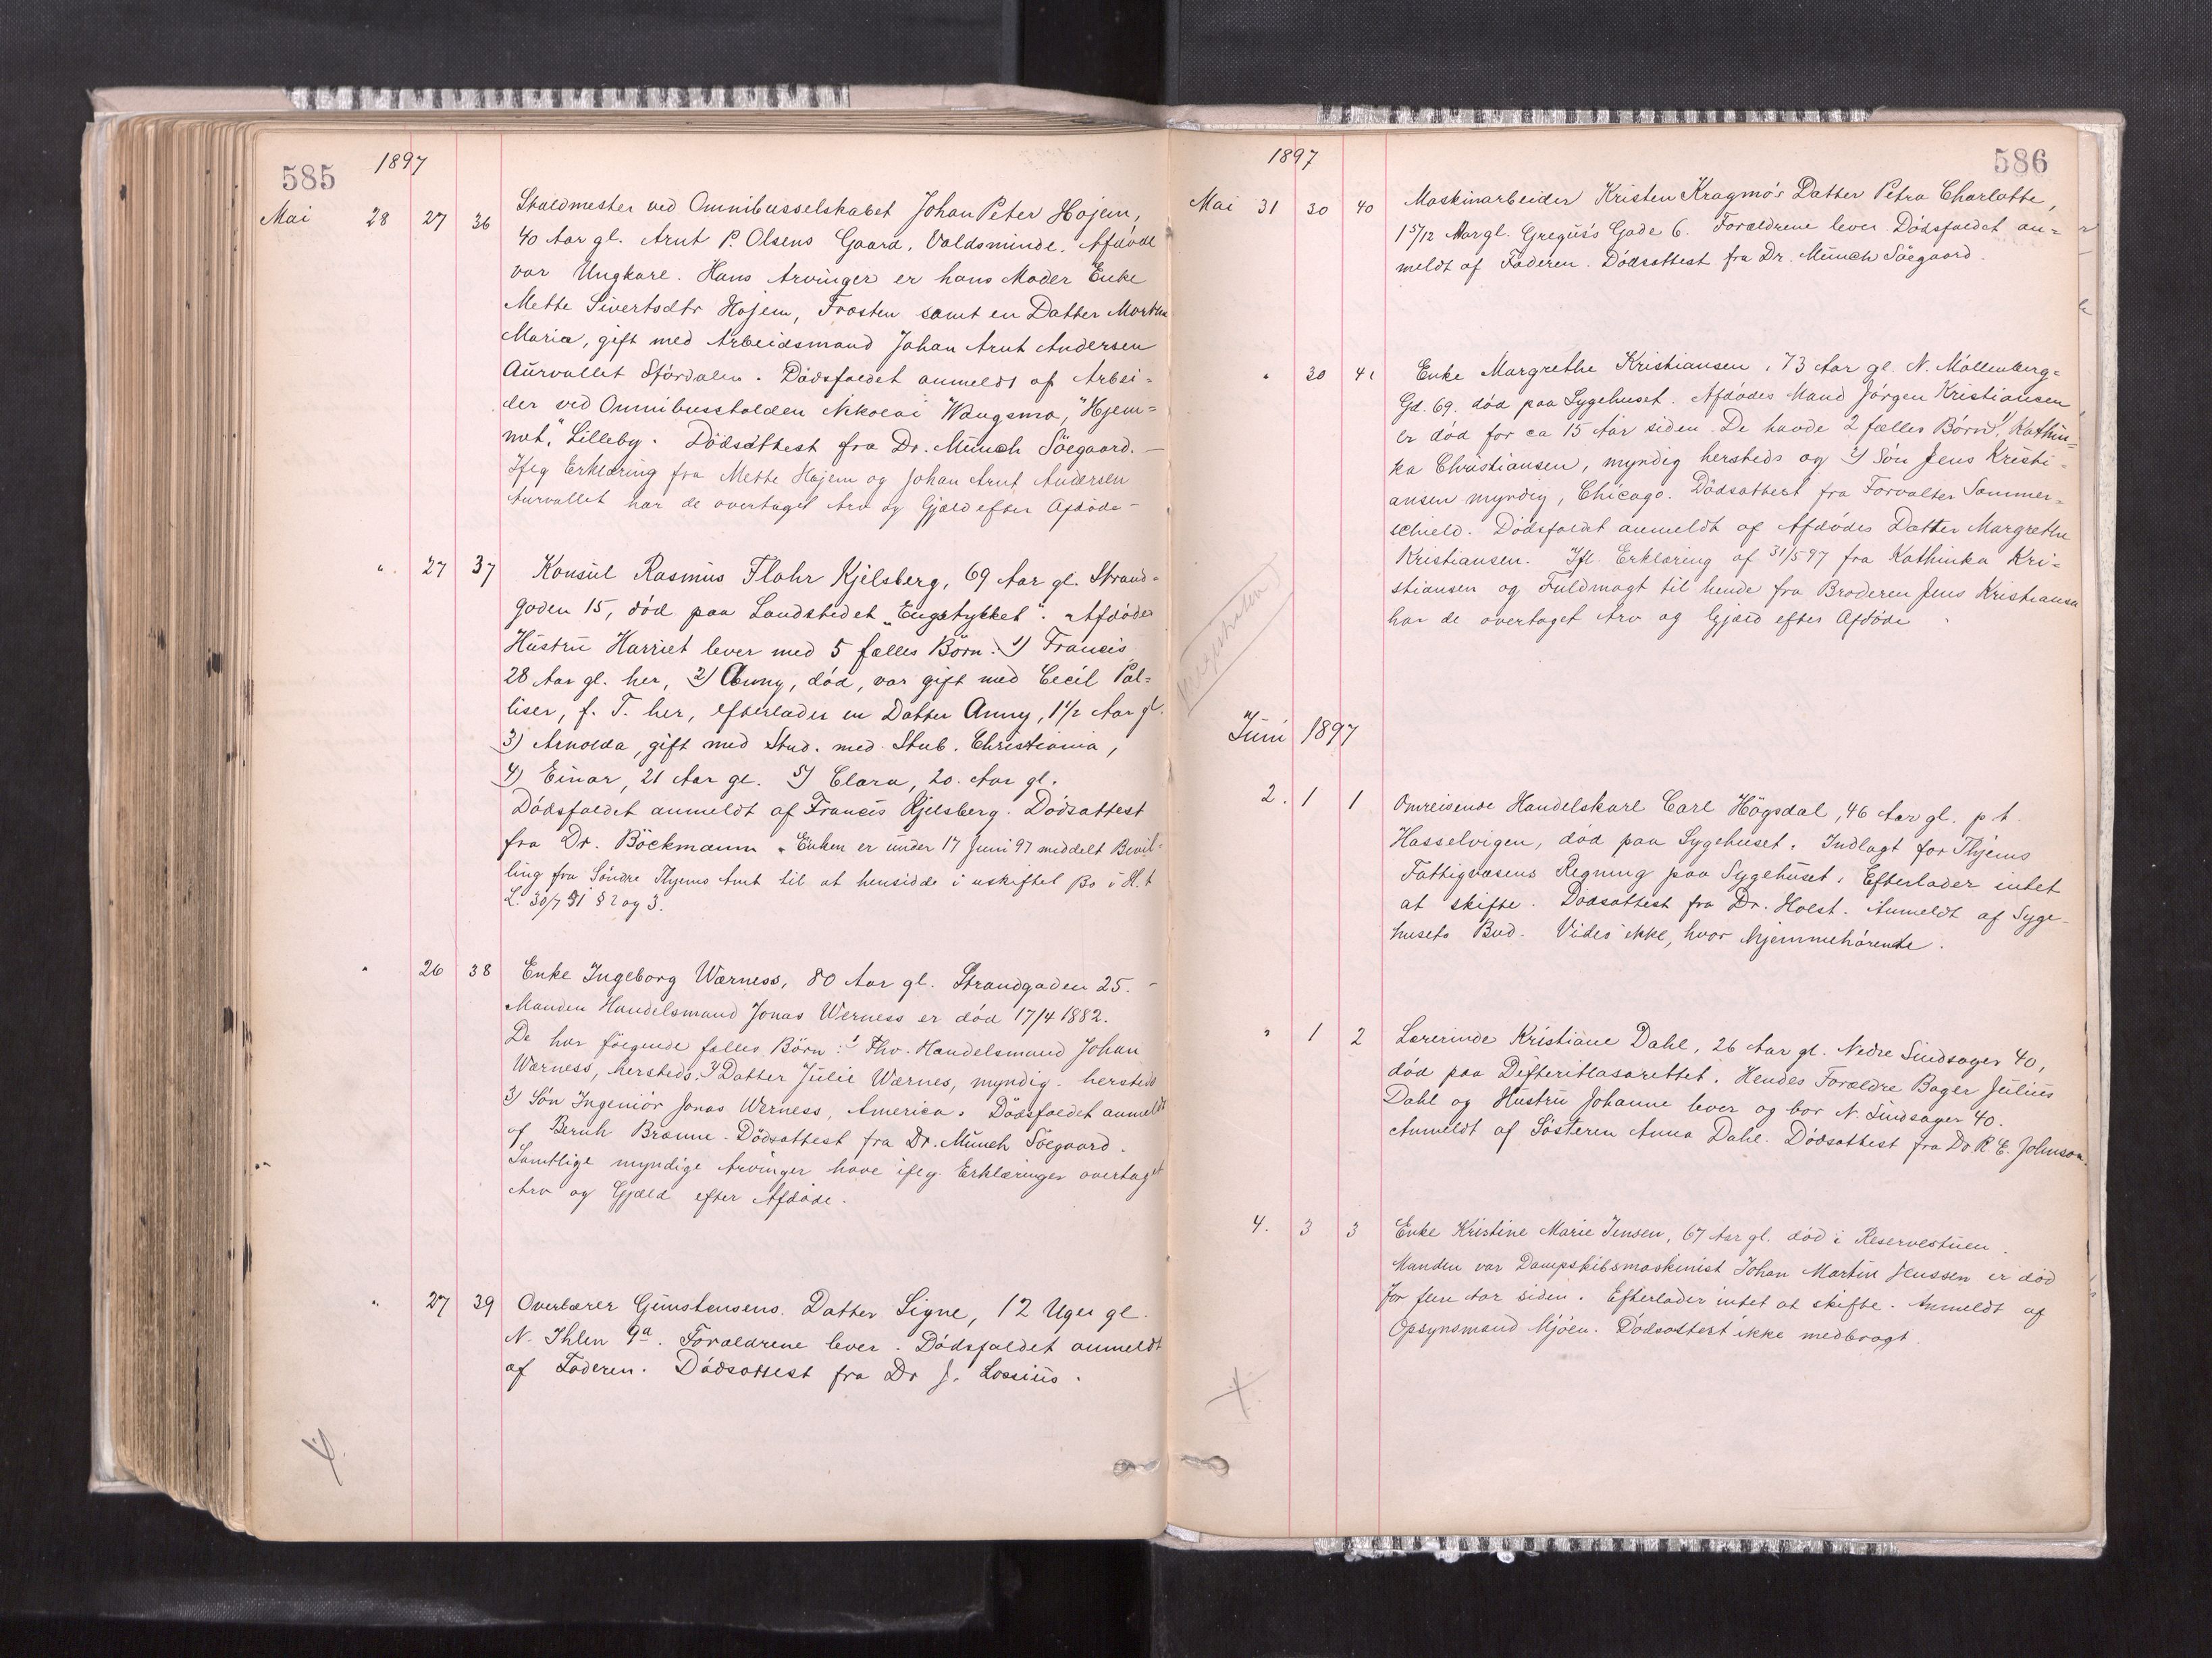 585
1897
Mai 28 27 36 Staldmester ved Omnibusselskabet Johan Peter Hojem,
40 Aar gl. Arnt P. Olsens Gaard, Valdsminde. Afdøde
var Ungkarl. Hans Arvinger er hans Moder Enke
Mette Sivertsdtr Hojem, Frosten samt en Datter Martha
Maria, gift med Arbeidsmand Johan Arnt Andersen
Aurvallet Stjørdalen. Dødsfaldet anmeldt af Arbei=
der ved Omnibusstalden Nikolai Wangsmo, "Hjem=
met," Lilleby. Dødsattest fra Dr. Münch Söegaard. —
Ifлg Erklæring fra Mette Hojem og Johan Arnt Andersen
Aurvallet har de overtaget Arv og Gjæld efter Afdøde —
" 27 37 Konsul Rasmus Flohr Kjelsberg, 69 Aar gl. Strand=
gaden 15, død paa Landstedet "Engstykket". Afdødes
Hustru Harriet lever med 5 fælles Börn: 1) Francis
28 Aar gl. her, 2) Anny, død, var gift med Cecil Pal=
liser, f. T. her, efterlader en Datter Anny, 1 1/2 Aar gl.
3) Arnolda, gift med Stud. med. Stub. Christiania,
4) Einar, 21 Aar gl. 5) Clara, 20. Aar gl.
Dødsfaldet anmeldt af Francis Kjelsberg. Dødsattest
fra Dr. Böckmann. Enken er under 17 Juni 97 meddelt Bevil=
ling fra Söndre Thjems Amt til at hensidde i uskiftet Bo i H. t
L. 30/7 51 § 2 og 3.
" 26 38 Enke Ingeborg Wærness, 80 Aar gl. Strandgaden 25. —
Manden Handelsmand Jonas Werness er død 17/4 1882.
De har følgende fælles Börn: 1 Fhv. Handelsmand Johan
Wærness, hersteds. 2) Datter Julie Wærnes, myndig. hersteds
3) Sön Ingeniör Jonas Werness, America. Dødsfaldet anmeldt
af Bernh Brænne. Dødsattest fra Dr. Münch Söegaard.
Samtlige myndige Arvinger have iflg. Erklæringer overtaget
Arv og Gjæld efter Afdøde.
" 27 39 Overlærer Gunstensens Datter Signe, 12 Uger gl.
N. Ihlen 9a. Forældrene lever. Dødsfaldet anmeldt
af Faderen. Dødsattest fra Dr J. Lossius.
586
1897
Mai 31 30 40 Maskinarbeider Kristen Kragmo's Datter Petra Charlotte,
1 5/12 Aar gl. Gregus's Gade 6. Forældrene lever. Dødsfaldet an=
meldt af Faderen. Dødsattest fra Dr. Münch Söegaard.
" 30 41 Enke Margrethe Kristiansen, 73 Aar gl. N. Møllenberg=
Gd. 69. død paa Sygehuset. Afdødes Mand Jørgen Kristiansen,
er død for ca 15 Aar siden. De havde 2 fælles Börn: 1) Kathin=
ka Christiansen, myndig hersteds og 2) Sön Jens Kristi=
ansen myndig, Chicago. Dødsattest fra Forvalter Sommer=
schield. Dødsfaldet anmeldt af Afdødes Datter Margrethe
Kristiansen. Ifl. Erklæring af 31/5 97 fra Kathinka Kri=
stiansen og Fuldmagt til hende fra Broderen Jens Kristiansen
har de overtaget Arv og Gjæld efter Afdøde.
Juni 1897
2. 1 1 Omreisende Handelskarl Carl Högsdal, 46 Aar gl. p. t.
Hasselvigen, død paa Sygehuset. Indlagt for Thjems
Fattigvæsens Regning paa Sygehuset. Efterlader intet
at skifte. Dødsattest fra Dr. Holst. Anmeldt af Syge=
husets Bud. Vides ikke, hvor hjemmehörende.
" 1 2 Lærerinde Kristiane Dahl, 26 Aar gl. Nedre Sindsager 40,
død paa Difteritlasarettet. Hendes Forældre Bager Julius
Dahl og Hustru Johanne lever og bor N. Sindsager 40.
Anmeldt af Søsteren Anna Dahl. Dødsattest fra Dr R. E. Johnson.
4. 3 3 Enke Kristine Marie Jensen, 67 Aar gl. død i Reservestuen.
Manden var Dampskibsmaskinist Johan Martin Jenssen er død
for flere Aar siden. Efterlader intet at skifte. Anmeldt af
Opsynsmand Mjöen. Dødsattest ikke medbragt.